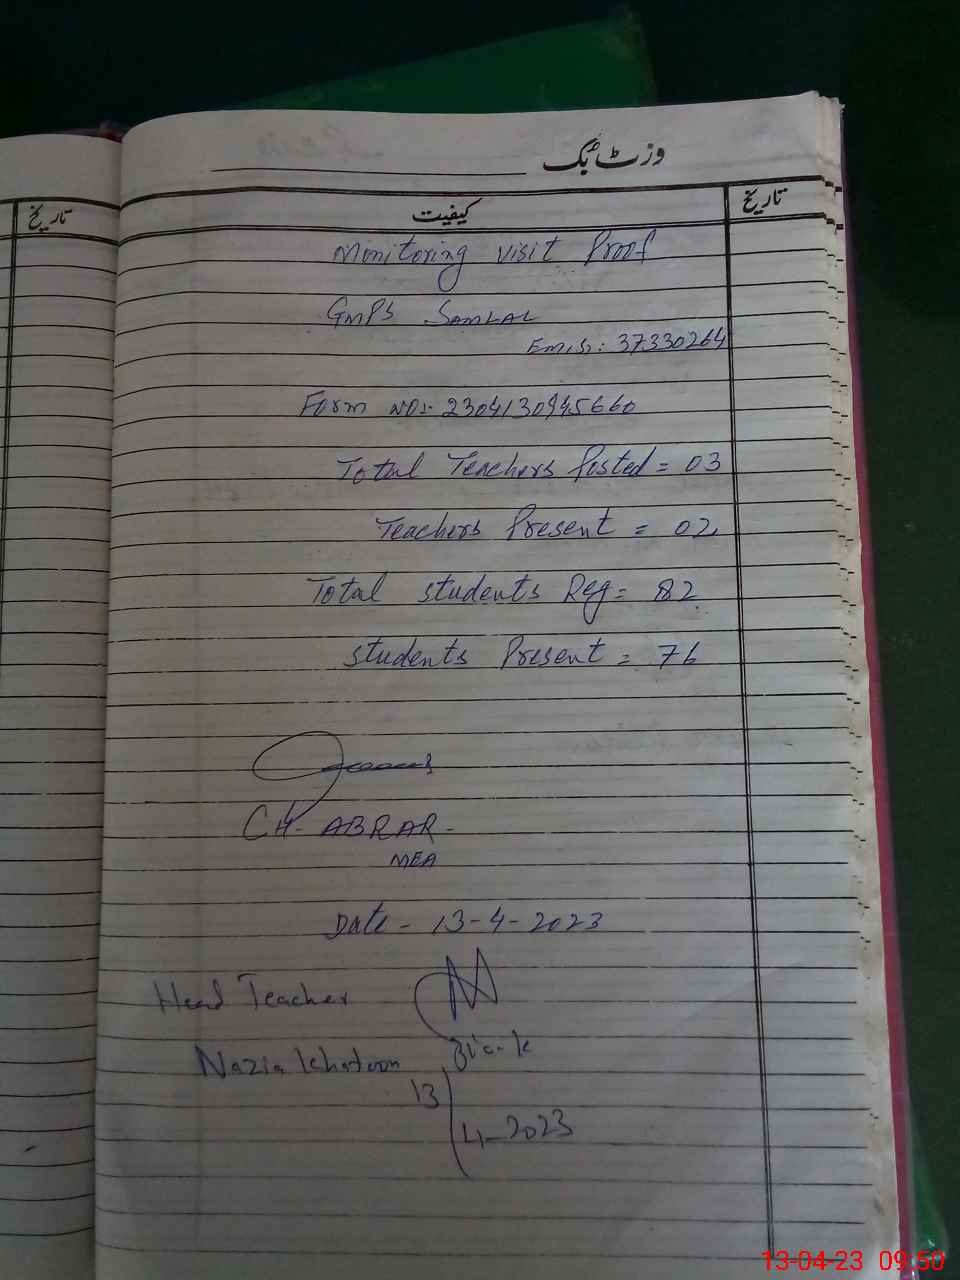 وزٹ بُک
تاریخ
کیفیت
تاریخ
Monitoring visit Proof
GMPS SAMLAL
Emis: 37330264
Form No:- 2304130945660
Total Teachers Posted = 03
Teachers Present = 02
Total students Reg = 82
students Present = 76
CH- ABRAR-
MEA
Date - 13-4-2023
Head Teacher
Nazia Khatoon
13/4-2023
13-04-23 09:50